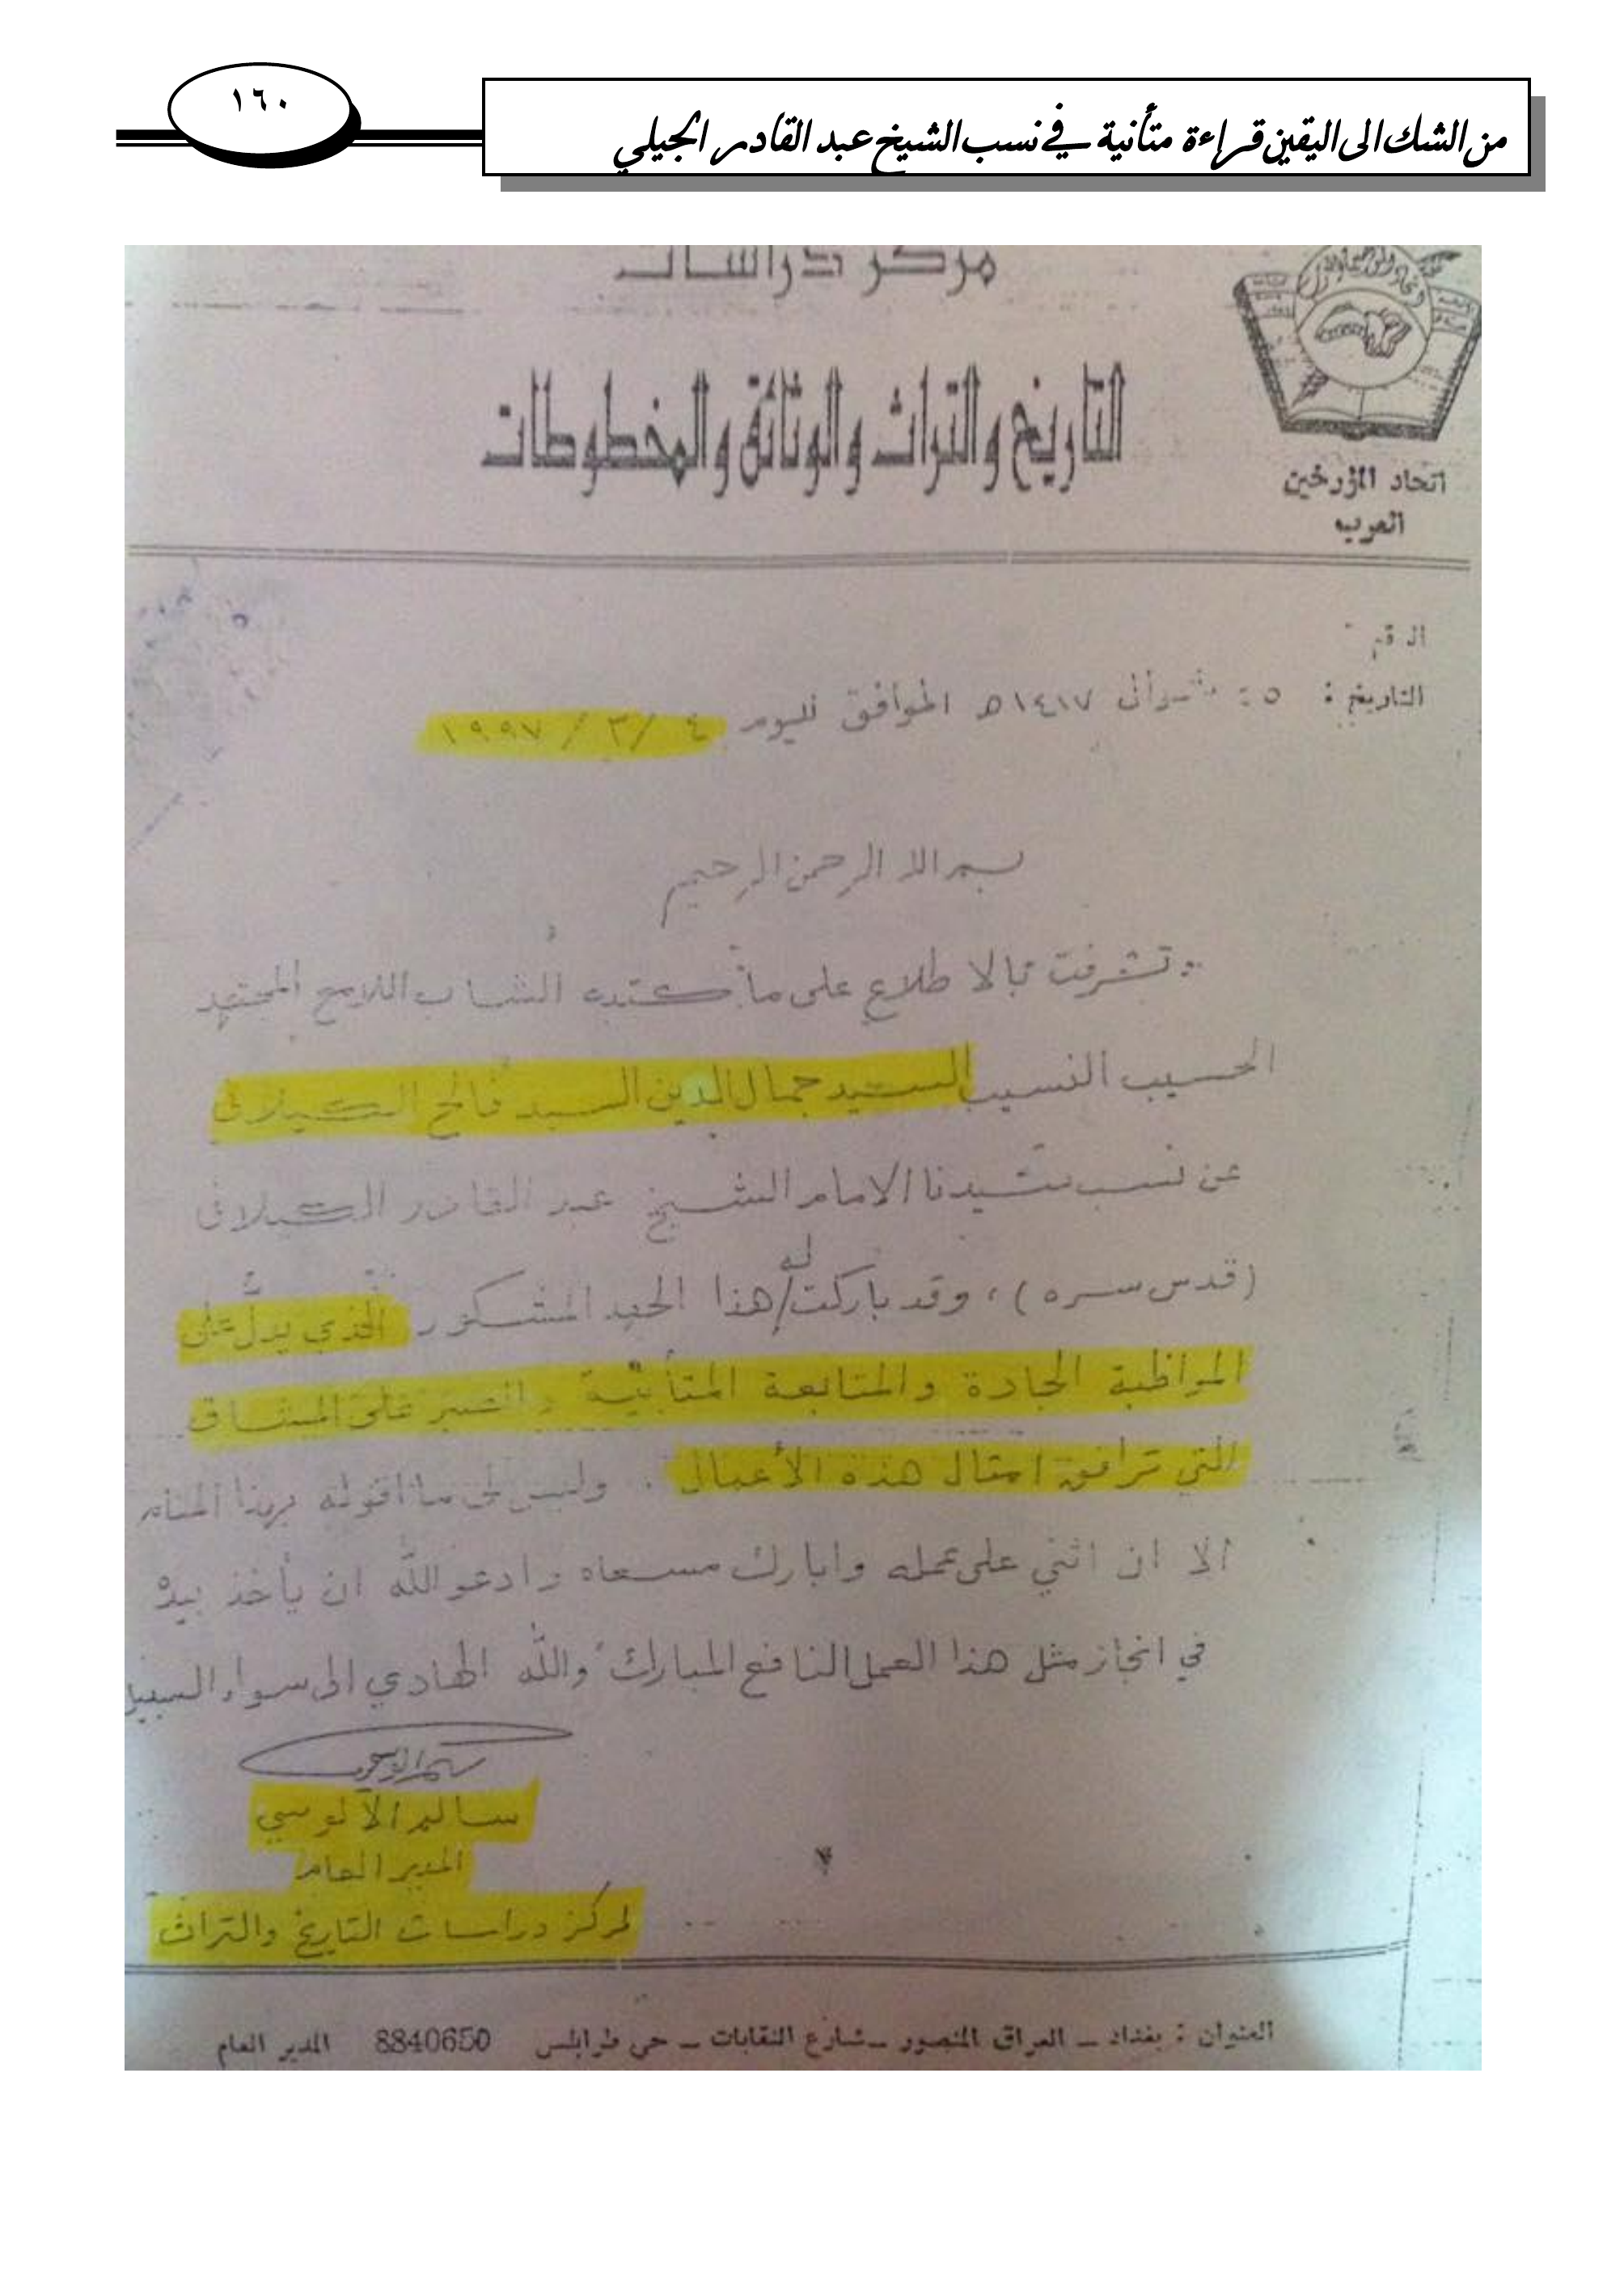 من الشك الى اليقين قراءة متأنية في نسب الشيخ عبد القادر الجيلي
١٦٠
مركز دراسات
التاريخ والتراث والوثائق والمخطوطات
اتحاد المؤرخين
العرب
الرقم
التاريخ : ٢٥ شوال ١٤١٧ه الموافق لليوم ٤ / ٣ / ١٩٩٧
بسم الله الرحمن الرحيم
تشرفت بالاطلاع على ما كتبه الشاب اللامع المجتهد
الحسيب النسيب السيد جمال الدين السيد فالح الكيلاني
عن نسب سيدنا الامام الشيخ عبد القادر الكيلاني
(قدس سره) ، وقد باركت له هذا الجهد المشكور الذي يدل على
المواظبة الجادة والمتابعة المتأنية والصبر على المشاق
التي ترافق امثال هذه الأعمال . وليس لي ما اقوله بهذا المقام
الا ان اثني على عمله وابارك مسعاه وادعو الله ان يأخذ بيده
في انجاز مثل هذا العمل النافع المبارك والله الهادي الى سواء السبيل
سالم الآلوسي
المدير العام
لمركز دراسات التاريخ والتراث
العنوان : بغداد – العراق المنصور – شارع النقابات – حي طرابلس 8840650 المدير العام